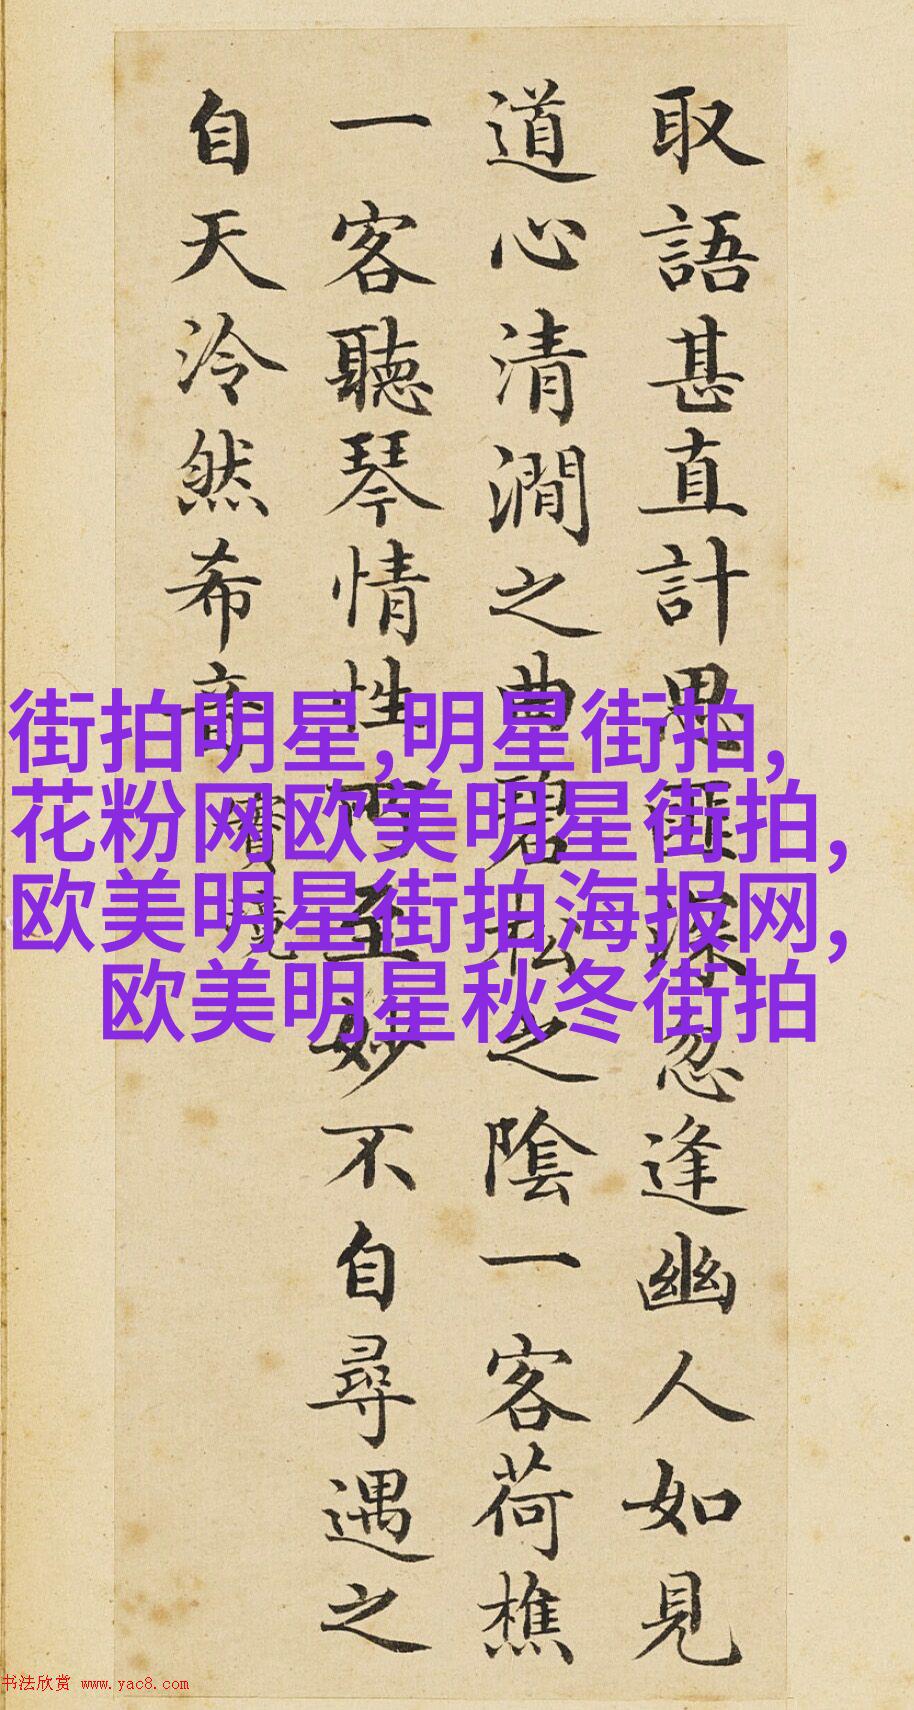 取語甚直計思匪深忽逢幽人如見
道心清澗之曲碧松之陰一客荷樵
一客聽琴情性所至妙不自尋遇之
自天泠然希音
實境
街拍明星,明星街拍,
花粉网欧美明星街拍,
欧美明星街拍海报网,
欧美明星秋冬街拍
书法欣赏 www.yac8.com